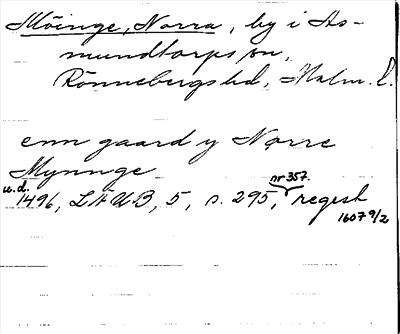 Möinge, Norra, by i As-
mundtorps sn,
Rönnebergs hd, Malm. l.
enn gaard y Nørre
Mynnge
u.d.
1496, LÄUB, 5, s. 295, nr 357. regest
1607 9/2